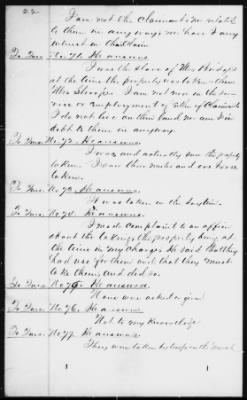 I am not the Claimant & not related
to them in any ways nor have I any
interest in this Claim
To Inter. No. 71. He answers
I was the slave of Mrs
at the time the property was taken
I am not now in the ser-
vice or employment of either of Claimants
I do not live on their land nor am I in
debt to them in any way
To Inter. No. 72. He answers
I was, and actually saw the property
taken. I saw their mules and one horse
taken.
To Inter. No 73. He answers
It was taken in the daytime
To Inter. No 74. He answers
I made complaint to an officer
about the taking the property being at
the time in my charge. He said that they
had use for them and that they must
take them, and did so.
To Inter. No 75. He answered
None were asked or given
To Inter. No 76. He answers
Not to my knowledge
To Inter. No 77. He answers
They were taken by troops on the march